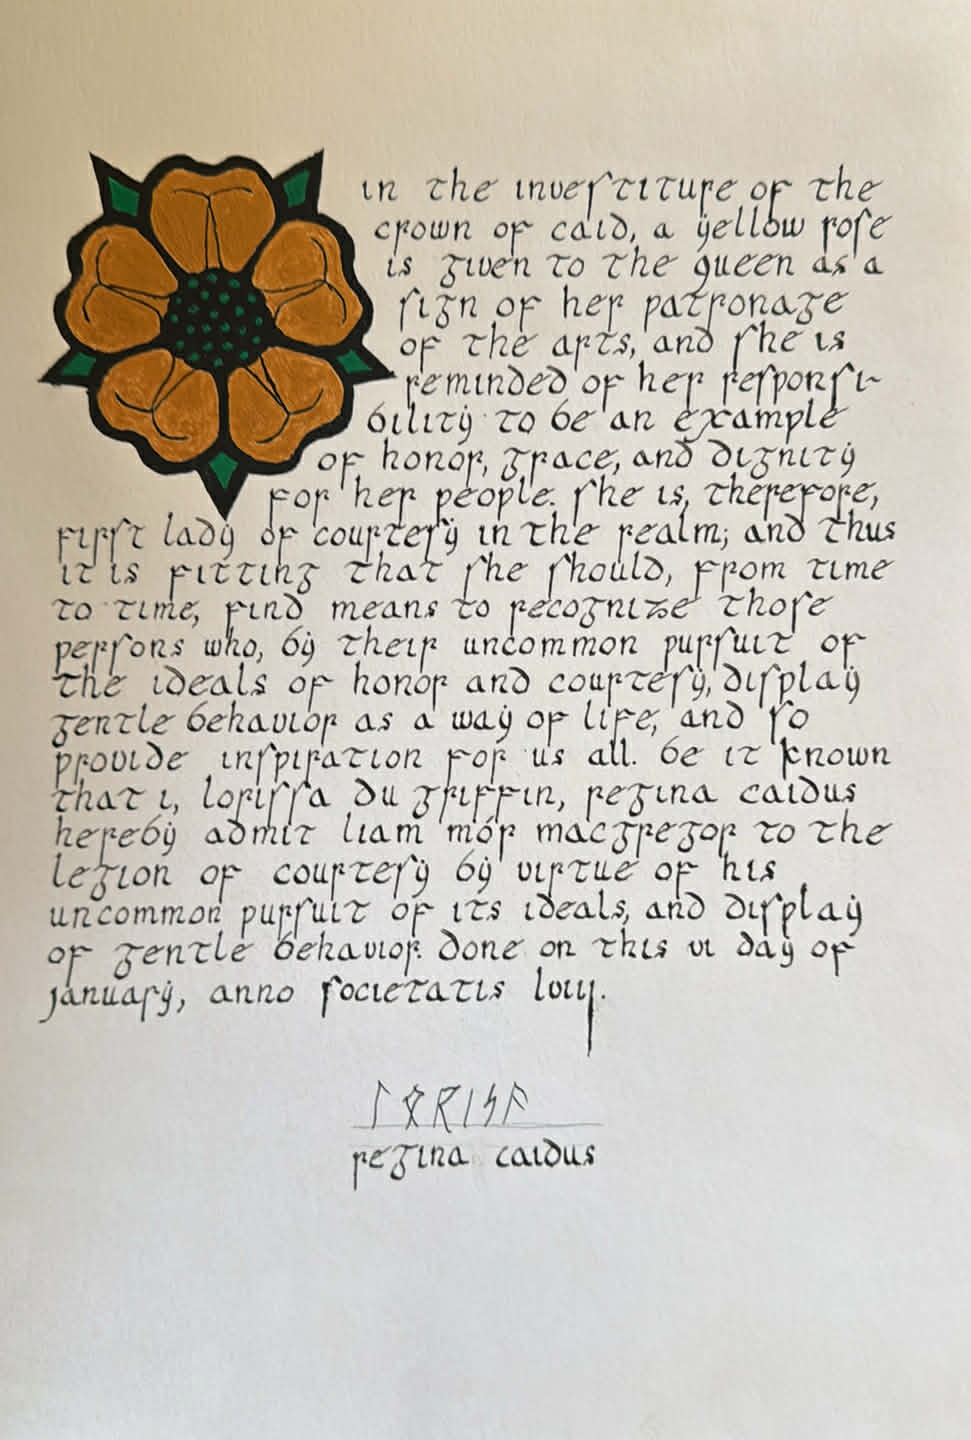 in the inveſtiture of the
crown of caid, a ẏellow roſe
is given to the queen as a
ſign of her patronage
of the arts, and ſhe is
reminded of her reſponſi-
bilitẏ to be an example
of honor, grace, and dignitẏ
for her people. ſhe is, therefore,
firſt ladẏ of courteſẏ in the realm; and thus
it is fitting that ſhe ſhould, from time
to time, find means to recognize thoſe
perſons who, bẏ their uncommon purſuit of
the ideals of honor and courteſẏ, diſplaẏ
gentle behavior as a waẏ of life, and ſo
provide inſpiration for us all. be it known
that i, loriſſa du griffin, regina caidus
herebẏ admit liam mór macgregor to the
legion of courteſẏ bẏ virtue of his
uncommon purſuit of its ideals, and diſplaẏ
of gentle behavior. done on this vi daẏ of
januarẏ, anno ſocietatis lviij.
ᛚᛟᚱᛁᛋᚨ
regina caidus